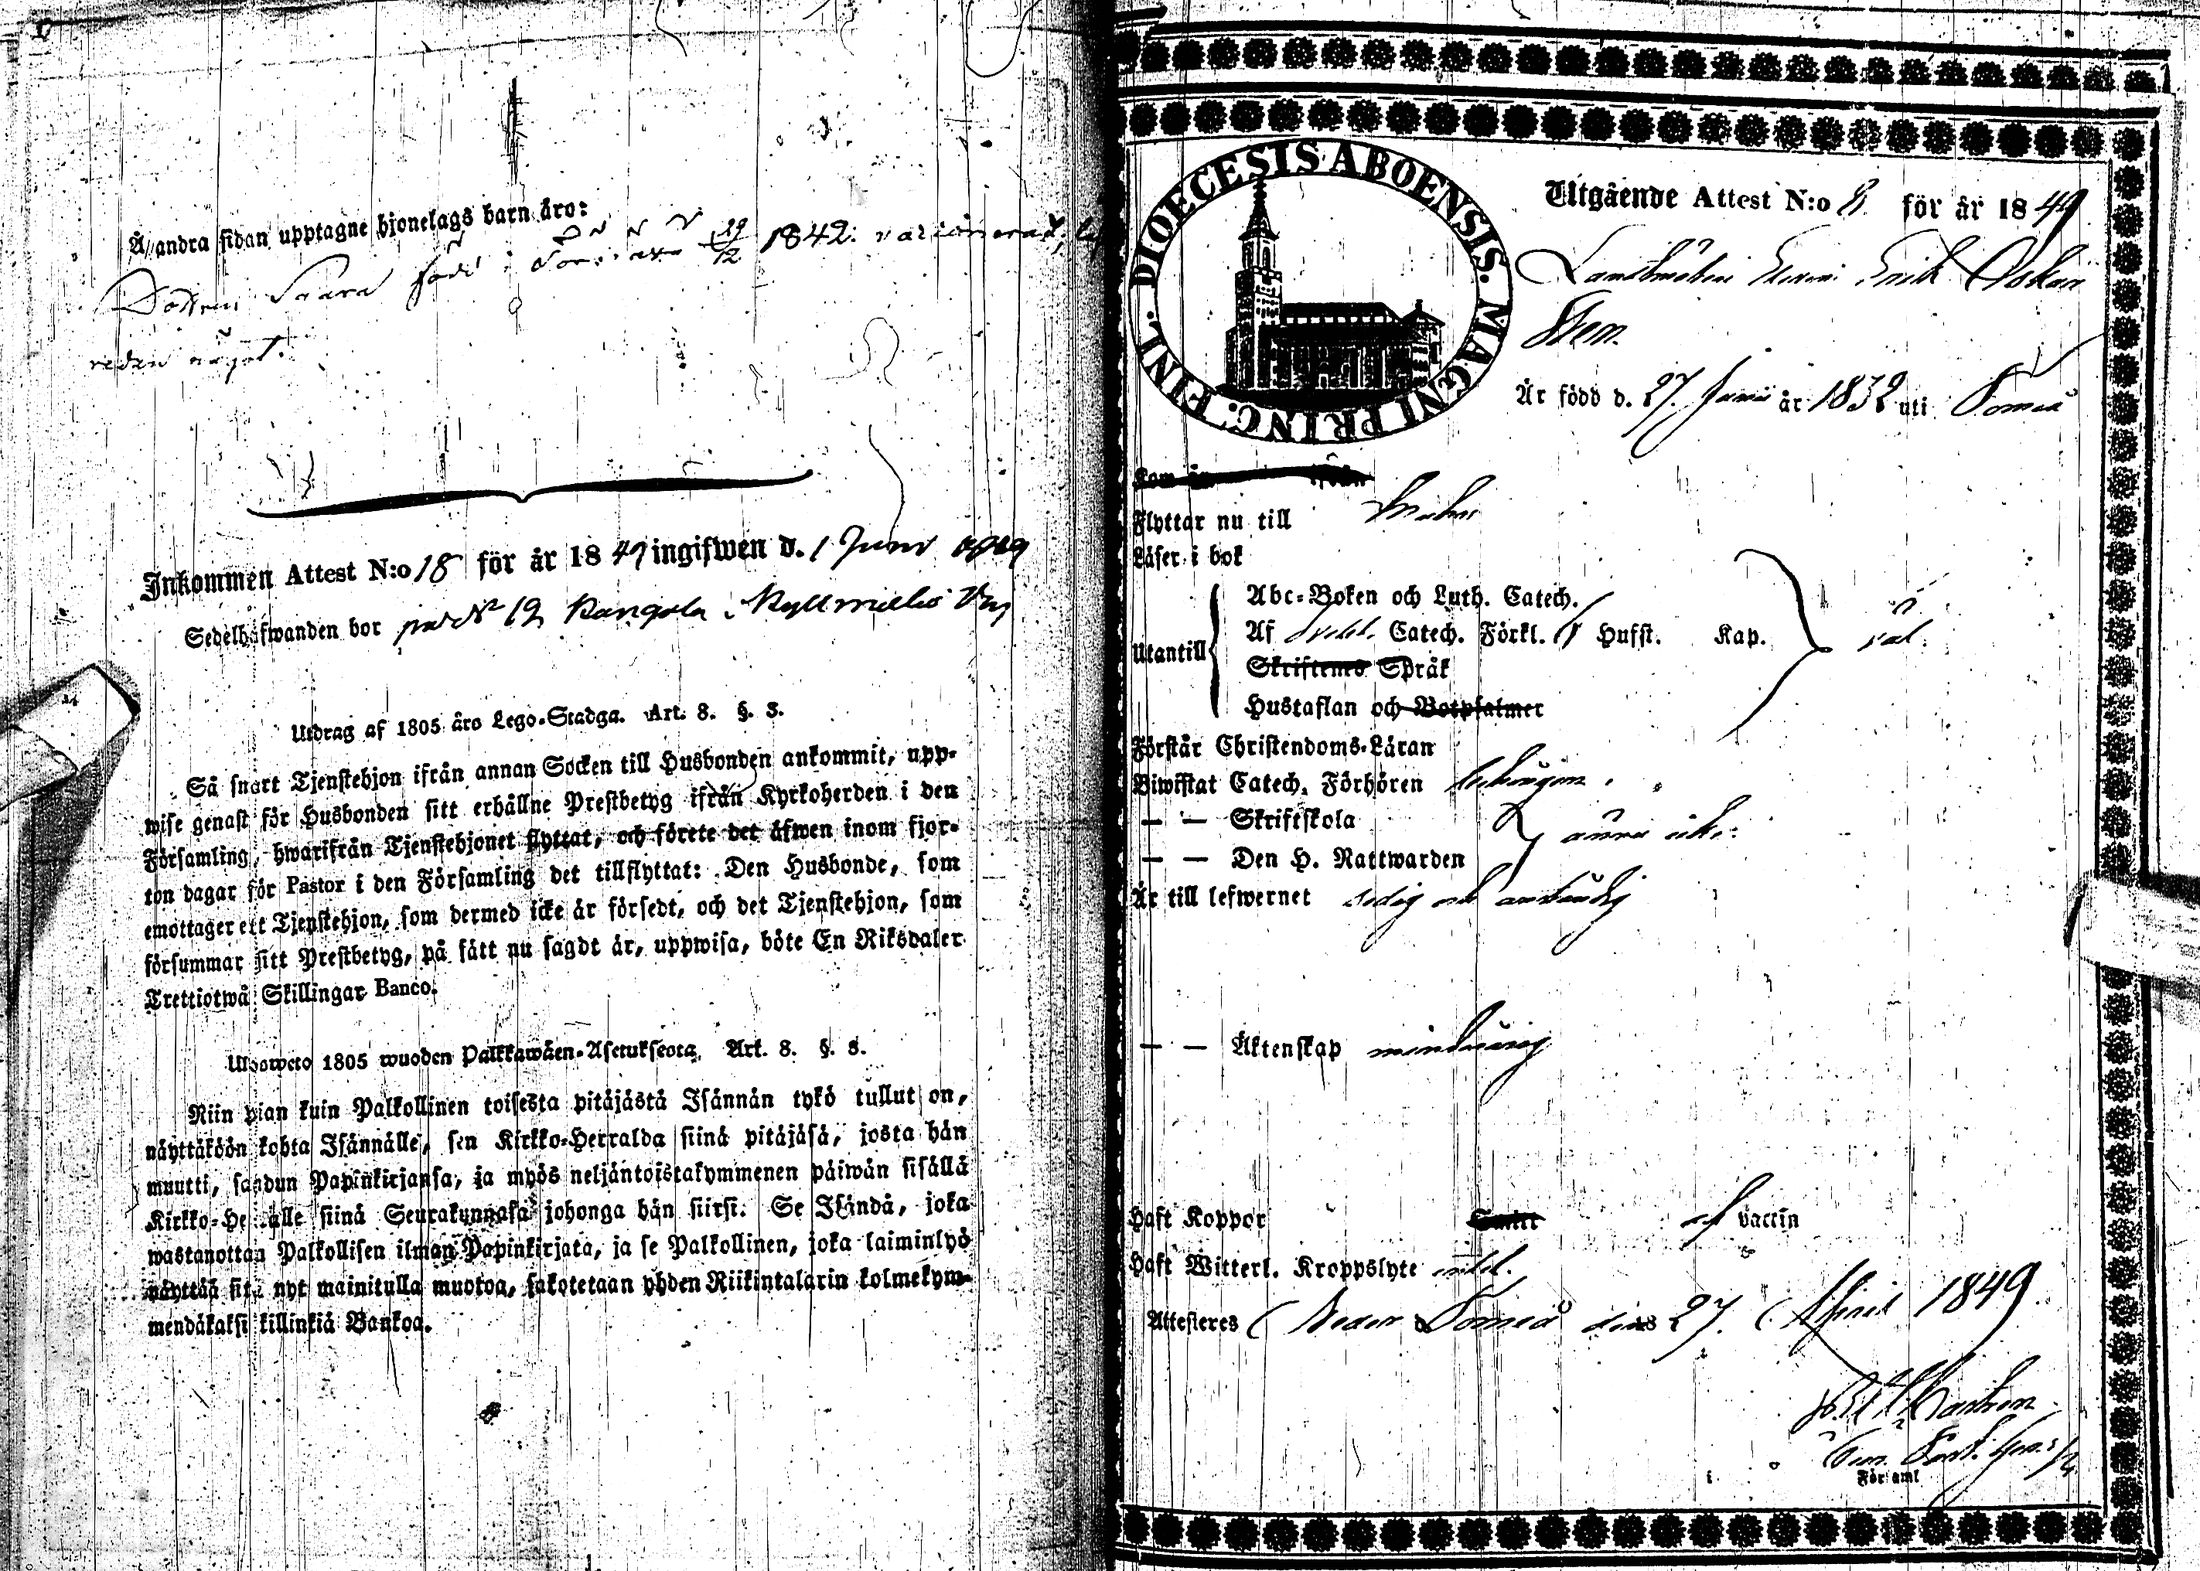 Å andra sidan upptagne hjonelags barn äro:
Dottren Saara född i 29/12 1842:
redan något.
Inkommen Attest N:o 18 för år 1849 ingifwen d. 1 Juni 1849
Sedelhafwanden bor på N:o 12 Kangola
Utdrag af 1805 års Lego-Stadga. Art. 8. §. 3.
Så snart Tjenstehjon ifrån annan Socken till Husbonden ankommit, upp-
wise genast för Husbonden sitt erhållne Prestbetyg ifrån Kyrkoherden i den
Församling, hwarifrån Tjenstehjonet flyttat, och förete det äfwen inom fjor-
ton dagar för Pastor i den Församling det tillflyttat: Den Husbonde, som
emottager ett Tjenstehjon, som dermed icke är försedt, och det Tjenstehjon, som
försummar sitt Prestbetyg, på sätt nu sagdt är, uppwisa, böte En Riksdaler
Trettiotwå Skillingar Banco.
Ulosweto 1805 wuoden Palkkawäen-Asetuksesta, Art. 8. §. 3.
Niin pian kuin Palkollinen toisesta pitäjästä Isännän tykö tullut on,
näyttäköön kohta Isännälle, sen Kirkko-Herralda siinä pitäjäsä, josta hän
muutti, saadun Papinkirjansa, ja myös neljäntoistakymmenen päiwän sisällä
Kirkko-Herralle siinä Seurakunnasa johonga hän siirsi. Se Isändä, joka
wastanottaa Palkollisen ilman Papinkirjata, ja se Palkollinen, joka laiminlyö
näyttää sitä nyt mainitulla muotoa, sakotetaan yhden Riikintalarin kolmekym-
mendäkaksi killinkiä Bankoa.
DIOECESIS ABOENSIS. MAGNI PRINC. FINL.
Utgående Attest N:o 8 för år 1849
Landtmäteri Erik Oskar
Är född d. 27 Junii år 1832 uti Torneå
Kom år ifrån
Flyttar nu till
Läser i bok
Utantill
Abc-Boken och Luth. Catech.
Af Catech. Förkl. Hufst. Kap.
Skriftenes Språk
Hustaflan och Botpsalmer
väl.
Förstår Christendoms-Läran
Biwistat Catech. Förhören
— — Skriftskola
— — Den H. Nattwarden
ännu icke:
Är till lefwernet sedig och anständig
— — Äktenskap minderårig
Haft Koppor Smitt af vaccin
Haft Witterl. Kroppslyte intet.
Attesteres Neder Torneå den 27. April 1849
Församl